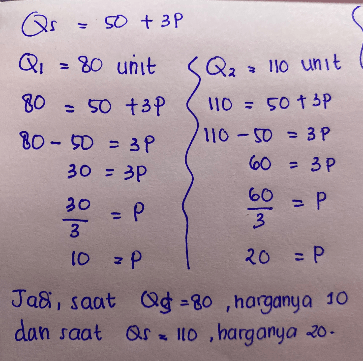 Qs = 50 + 3P
Q1 = 80 unit
80 = 50 + 3P
80 - 50 = 3P
30 = 3P
30/3 = P
10 = P
Q2 = 110 unit
110 = 50 + 3P
110 - 50 = 3P
60 = 3P
60/3 = P
20 = P
Jadi, saat Qs = 80, harganya 10
dan saat Qs = 110, harganya 20.